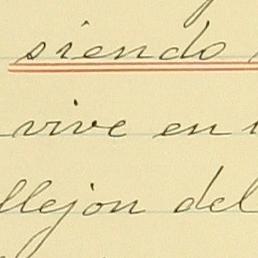 siendo
vive en
llejon del